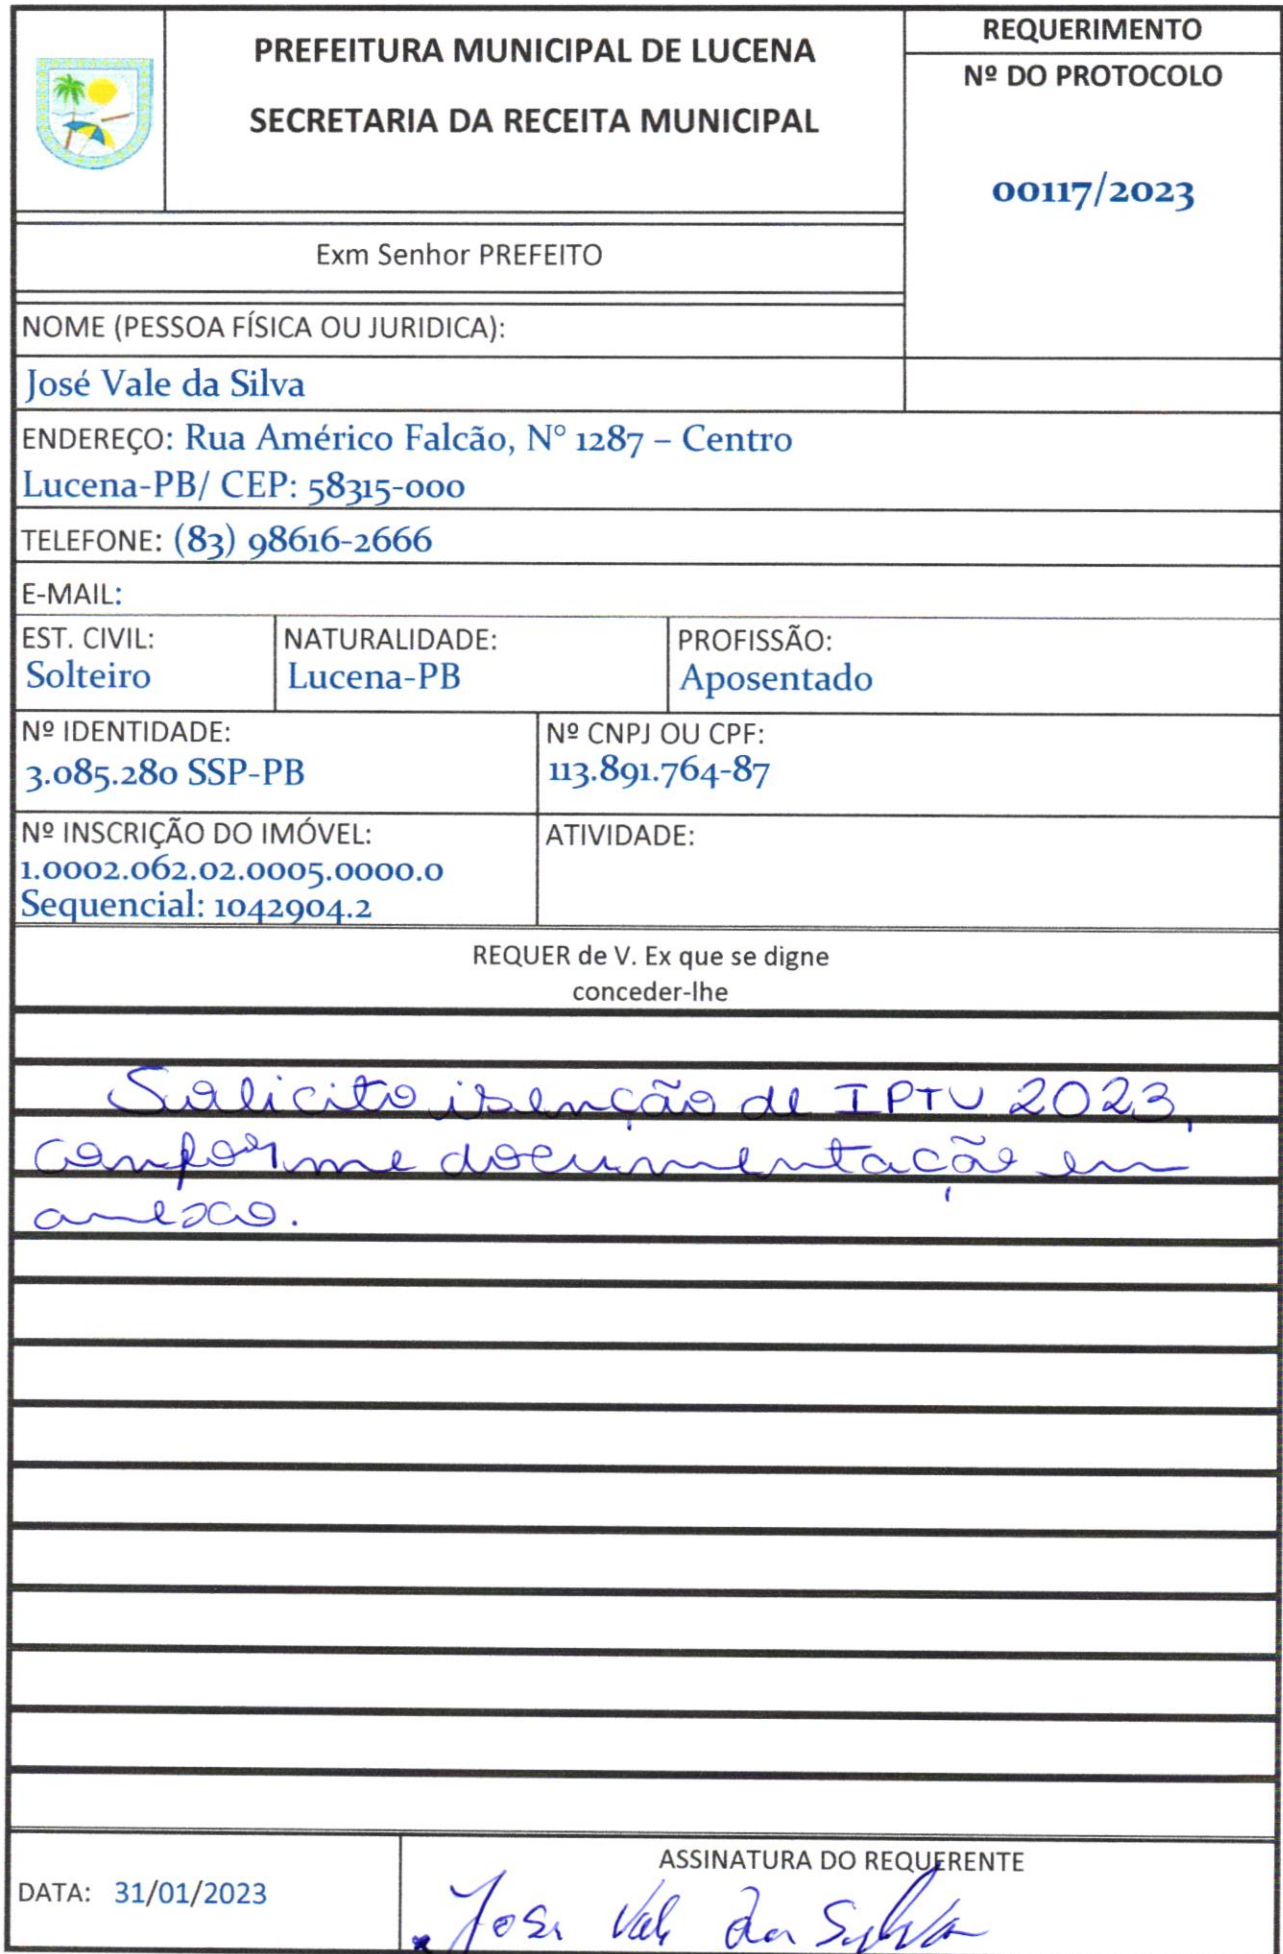 PREFEITURA MUNICIPAL DE LUCENA
SECRETARIA DA RECEITA MUNICIPAL
REQUERIMENTO
Nº DO PROTOCOLO
00117/2023
Exm Senhor PREFEITO
NOME (PESSOA FÍSICA OU JURIDICA):
José Vale da Silva
ENDEREÇO: Rua Américo Falcão, N° 1287 – Centro
Lucena-PB/ CEP: 58315-000
TELEFONE: (83) 98616-2666
E-MAIL:
EST. CIVIL:
Solteiro
NATURALIDADE:
Lucena-PB
PROFISSÃO:
Aposentado
Nº IDENTIDADE:
3.085.280 SSP-PB
Nº CNPJ OU CPF:
113.891.764-87
Nº INSCRIÇÃO DO IMÓVEL:
1.0002.062.02.0005.0000.0
Sequencial: 1042904.2
ATIVIDADE:
REQUER de V. Ex que se digne
conceder-lhe
Solicito isenção de IPTU 2023,
conforme documentação em
anexo.
DATA: 31/01/2023
ASSINATURA DO REQUERENTE
Jose Vale da Silva